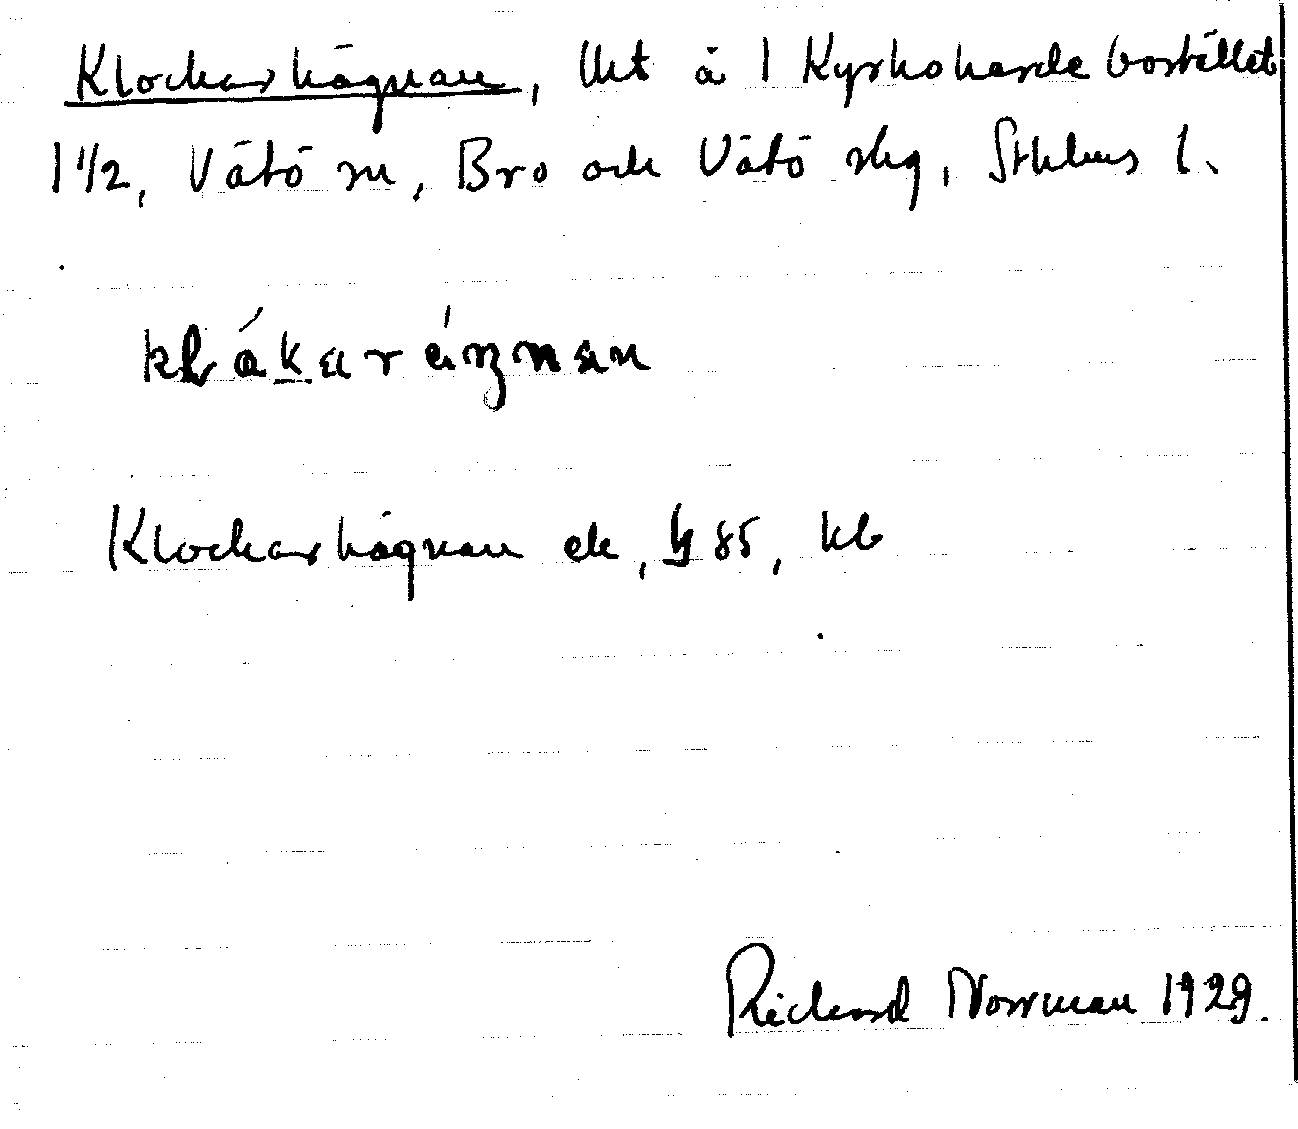 Klockarhägnan, Uet å 1 Kyrkoherdebostället
1 1/2, Vätö sn, Bro och Vätö slg, Sthlms l.
Klockarhägnan ek, 85, kb
Rickard Norrman 1929.